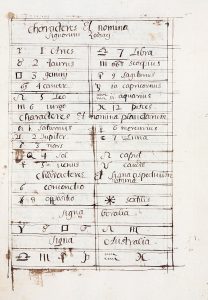 characteres et nomina
signorum Zodiaci
♈ 1 Aries ♎ 7 Libra
♉ 2 taurus ♏ scorpius
♊ 3 gemini ♐ 9 sagitarius
♋ 4 cancer ♑ 10 capricornus
♌ 5 Leo ♒ aquarius
♍ 6 uirgo ♓ 12 pisces
characteres et nomina planetarum
♄ 1 saturnus ☿ 6 mercurius
♃ 2 Jupiter ☾ 7 Luna
♂ 3 mars
☉ 4 sol ☊ caput
♀ venus ☋
characteres
☌ ✱ sextilis
☍
Signa borealia
♈ ♉ ♊ ♋ ♌ ♍
Signa Australia
♎ ♏ ♐ ♑ ♒ ♓